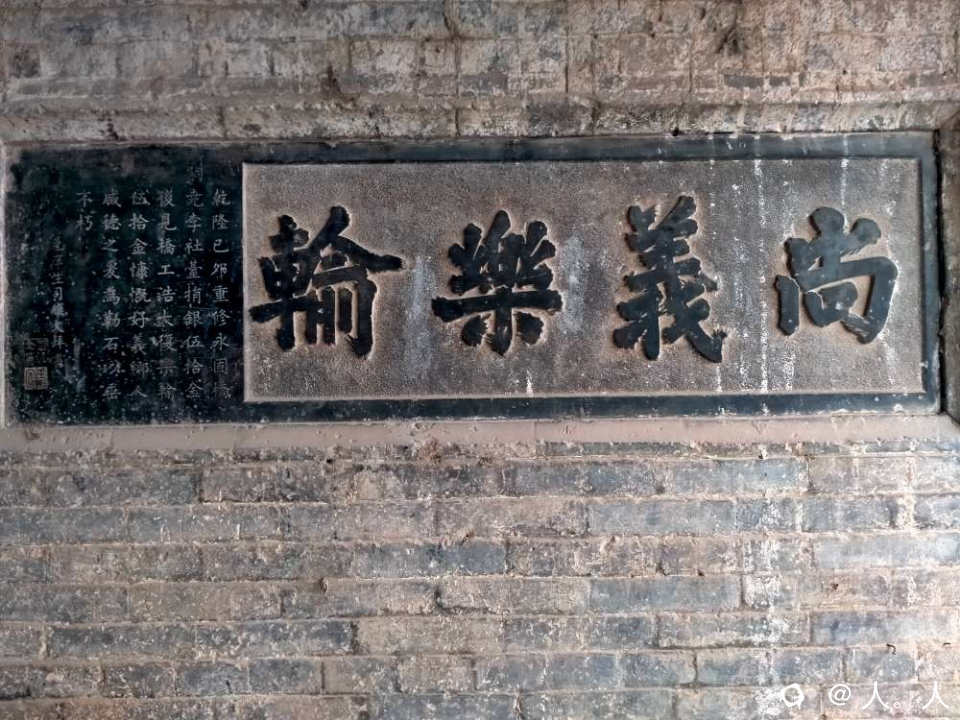 尚義樂輪
乾隆己卯重修永固
李社臺捐銀伍拾金
後見橋工浩大復樂輪
伍拾金慷慨好義鄉人
感德之爰為勒石以垂
不朽
@人。人